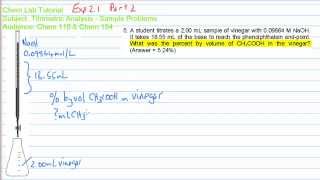 Chem Lab Tutorial
Subject: Titrimetric Analysis - Sample Problems
Audience: Chem 110 & Chem 154
Exp 2.1 Part 2
5. A student titrates a 2.00 mL sample of vinegar with 0.09864 M NaOH.
It takes 18.55 mL of the base to reach the phenolphthalein end-point.
What was the percent by volume of CH3COOH in the vinegar?
(Answer = 5.24%)
NaOH
0.09864 mol/L
18.55mL
% by vol CH3COOH in vinegar
? mL CH3
2.00mL vinegar